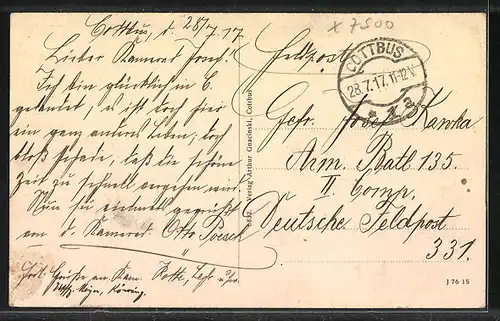 Cottbus, d. 28/7. 17.
Lieber Kamerad Josef!
Ich bin glücklich in C.
gelandet, es ist doch hier
ein ganz andres Leben, doch
bloß schade, daß die schöne
Zeit zu schnell vergehen wird.
Nun sei vielmals gegrüßt
von d. Kamerad. Otto
Grüße an Kam.
x 7500
Feldpost
COTTBUS
28.7.17. 11-12 V.
* 1 a
Gefr. Josef Kawka
Arm. Batl. 135.
II Comp.
Deutsche Feldpost
331.
Verlag Arthur Gnacinski, Cottbus
J 76 15